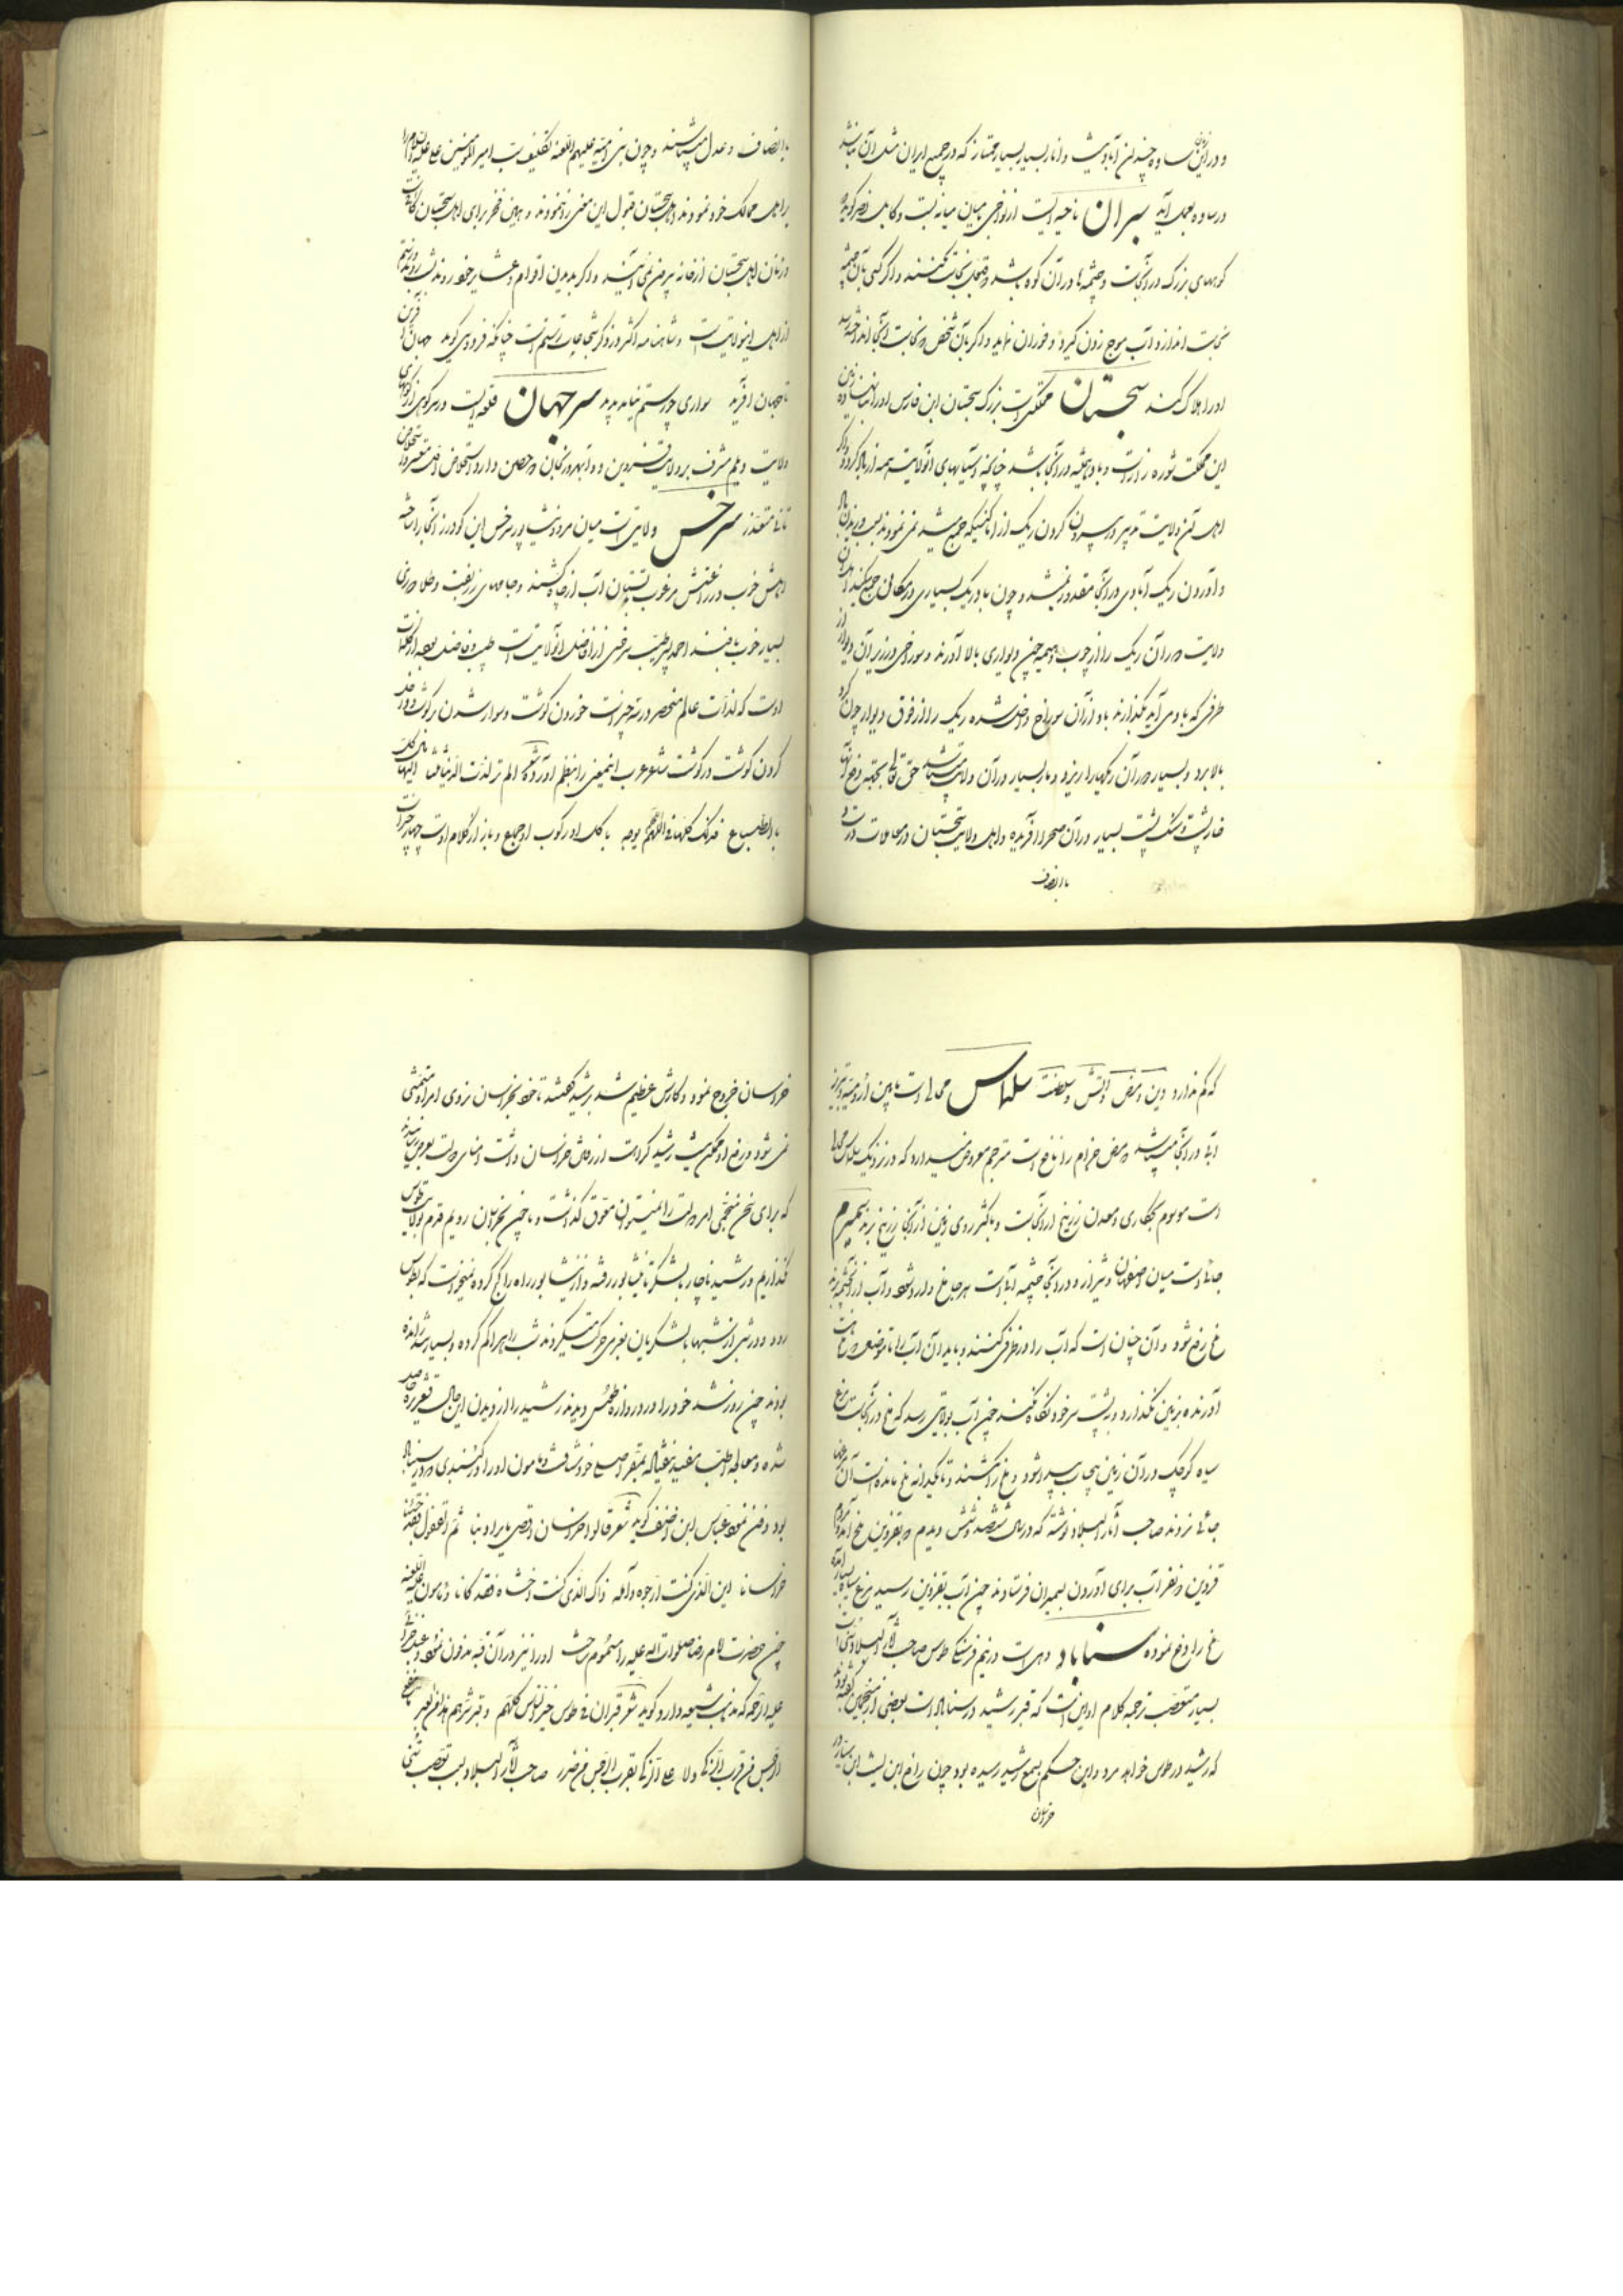 و در این زمان ساوه چندان آباد نیست و انار بسیار بسیار ممتاز که در جمیع ایران مثل آن نباشد
در ساوه بعمل آید سیران ناحیه ایست از نواحی میان
کوههای بزرگ در آنجاست و چشمه ها در آن کوه باشد و اگر کسی بآن چشمه
نجاست اندازد آب موج زدن گیرد و فوران نماید و اگر بآن شخص
او را هلاک کند سجستان مملکتی است بزرگ سجستان ابن فارس او را بنا نهاده زمین
این مملکت شوره زار است و باد همیشه در آنجا باشد چنانچه آسیابهای آن ولایت همه از باد گردد و اگر
اهل آن ولایت تدبیر در بیرون کردن ریک از اماکنی که جمع میشد نمی نمودند بسبب وزیدن باد
و آوردن ریک آبادی در آنجا مقدور نمیشد و چون باد ریک بسیاری در مکان جمع کند اهل آن
ولایت دور آن ریک را از چوب و هیمه چین دیواری بالا آورند و سوراخی در زیر آن دیوار از
طرفی که باد می آید بگذارند باد از آن سوراخ داخل شده ریک را از فوق دیوار چون گرد
بالا برد و بسیار دور آن ریکها را ریزد و مار بسیار در آن ولایت میباشد حق تعالی بجهة دفع آنها
خارپشت و سنگ پشت بسیار در آن صحرا آفریده و اهل ولایت سجستان در معاملات درست و
با انصاف
با انصاف و عدل میباشند و چون بنی امیه علیهم اللعنه تکلیف سب امیر المؤمنین علی علیه السلام را
بر اهل ممالک خود نمودند اهل سجستان قبول این معنی را ننمودند و همین فخر برای اهل سجستان کافیست
و زنان اهل سجستان از خانه بیرون نمی آیند و اگر بدیدن اقوام و عشایر خود روند شب روند و رستم
از اهل این ولایت است و شاهنامه اکثر در ذکر شجاعات رستم است چنانکه فردوسی گوید جهان آفرین
تا جهان آفرید سواری چو رستم نیامد پدید سرجهان قلعه ایست در سر کوهی از کوههای
ولایت دیلم مشرف بر ولایت قزوین و و ابهر و زنجان و حصین دارد و استخلاص آن
متعذر سرخس ولایتی است میان مرو و نیشاپور سرخس ابن گودرز آنجا را ساخته
اهلش خوب و زراعتش مرغوب آب از چاه کشند و جامهای زربفت
بسیار خوب بافند احمد بن طیب سرخسی از افاضل آن ولایت است طبیب و فاضل بوده از کلمات
اوست که لذات عالم منحصر در سه چیز است خوردن گوشت و سوار شدن بر گوشت و داخل
کردن گوشت در گوشت شاعر عرب این معنی را بنظم آورده شعر الم تر لذت الدنیا
که کم ندارد دین و مرض و آتش و سلطنت سلماس محلی است مابین ارومیه و تبریز
آبی در آنجا میباشد مرض جذام را نافع است مترجم معروض میدارد که در نزدیک سلماس محلی
است موسوم و معدن زرنیخ در آنجاست و باکثر روی زمین از آنجا زرنیخ برند سمیرم
جائی است میان اصفهان و شیراز و در آنجا چشمه آبی است هر جا ملخ وارد شود و آب از آن چشمه برند
ملخ رفع شود و آن چنان است که آب را در ظرفی کنند و باید آن آب را تا موضع
آورنده بزمین نگذارد و به پشت سر خود نگاه نکند چون آب بولایتی رسد که ملخ در آنجاست مرغ
سیاه کوچک در آن زمین بیحساب پیدا شود و ملخ را کشند و تا یکدانه ملخ مانده است آن مرغها
جائی نروند صاحب آثار البلاد نوشته که در سال ششصد و شش دیدم در قزوین ملخ آمد مردم
قزوین دو نفر آب برای آوردن بسمیران فرستادند چون آب بقزوین رسید مرغ سیاه بسیار آمده
ملخ را دفع نموده سناباد دهی است در نیم فرسنگی طوس صاحب آثار البلاد سنی است
بسیار متعصب ترجمه کلام او این است که قبر رشید در سناباد است بعضی از منجمین گفته بود
که رشید در طوس خواهد مرد و این حکم بسمع رشید رسیده بود چون رافع ابن لیث ابن سیار در
خراسان
خراسان خروج نمود و کارش عظیم شد برشید گفتند تا خود بخراسان نروی امر او متمشی
نمی شود و رفع او ممکن نیست رشید کراهت از رفتن خراسان داشت
که برای سخن منجمی امر دولت را نمیتوان معوق گذاشت و ما چون بخراسان رویم قدم بولایت طوس
نگذاریم و رشید ناچار با لشکر تا نیشابور رفته و از نیشابور راه را کج کرده نمیخواست که بطوس
رود و در شبی از شبها با لشکریان بغیر حرکت میکردند شب راه را گم کرده و بسیار رانده
بودند چون روز شد خود را در دروازه طوس دیدند رشید را از دیدن این حال قشعریره
شده و معالجه اطبا مفید نیفتاده بمقر اصلی خود شتافت و مامون او را در گنبدی در سناباد
بود دفن نمود عباس ابن احنف گوید شعر قالوا خراسان اقصی ما یراد بنا ثم القفول فقد جئنا
خراسانا این الذی کنت ارجوه و آمله ذاک الذی کنت اخشاه فقد کانا و مامون علیه اللعنه
چون حضرت امام رضا صلوات الله علیه را مسموم ساخت او را نیز در آن قبه مدفون نمود
علیه الرحمه که مذهب شیعه دارد گوید شعر قبران فی طوس خیر الناس کلهم و قبر شرهم هذا من العبر
الرجس من قرب الزکی و لا علی الزکی بقرب الرجس من ضرر صاحب آثار البلاد بسبب تعصب تسنن